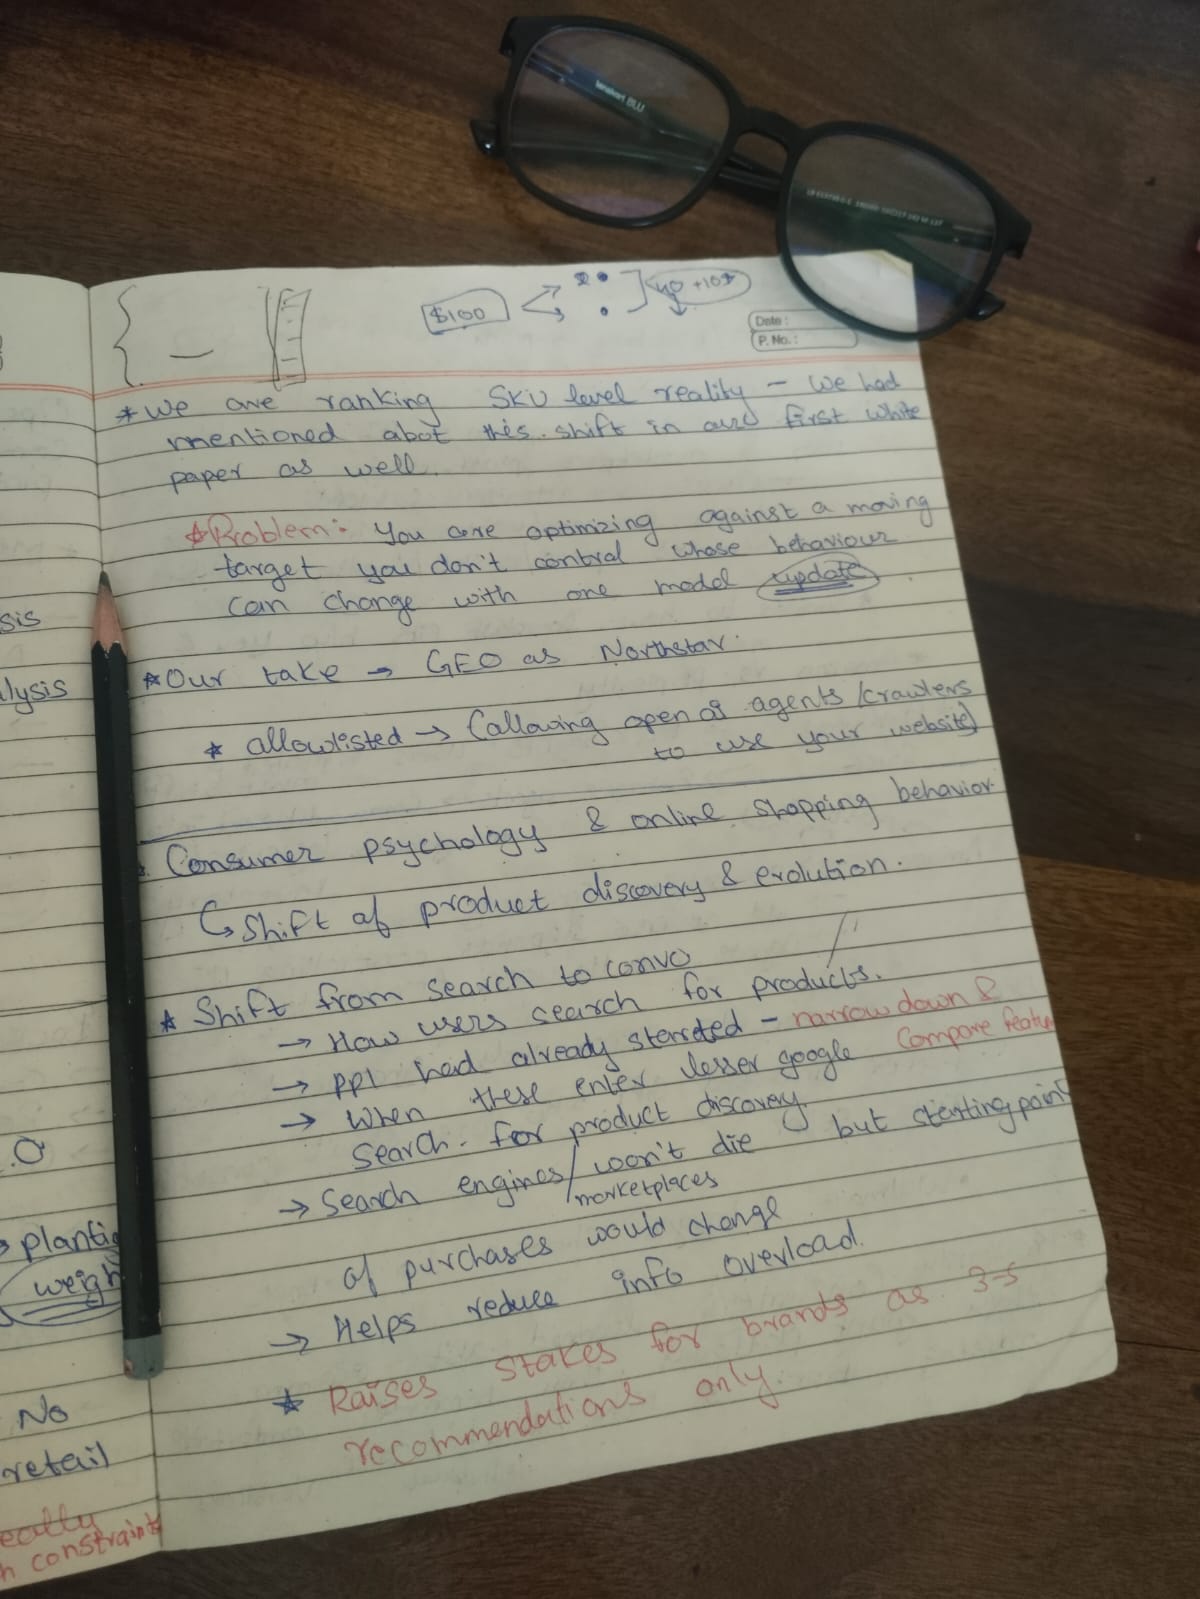 lenskart BLU
$100
40 +10$
Date :
P. No. :
* We are ranking SKU level reality - We had
mentioned abot this shift in our first white
paper as well.
* Problem:- You are optimizing against a moving
target you don't control whose behaviour
can change with one model update
* Our take → GEO as Northstar.
* allowlisted → (allowing open ai agents/crawlers
to use your website)
Consumer psychology & online shopping behavior.
↳ Shift of product discovery & evolution.
* Shift from search to convo
→ How users search for products.
→ ppl had already started - narrow down &
compare featur
→ When these enter lesser google
search. for product discovery
→ Search engines/ won't die but starting point
marketplaces
of purchases would change
→ Helps reduce info overload.
* Raises stakes for brands as 3-5
recommendations only.
sis
alysis
.O
→ planti
weigh
No
retail
eally
h constraints